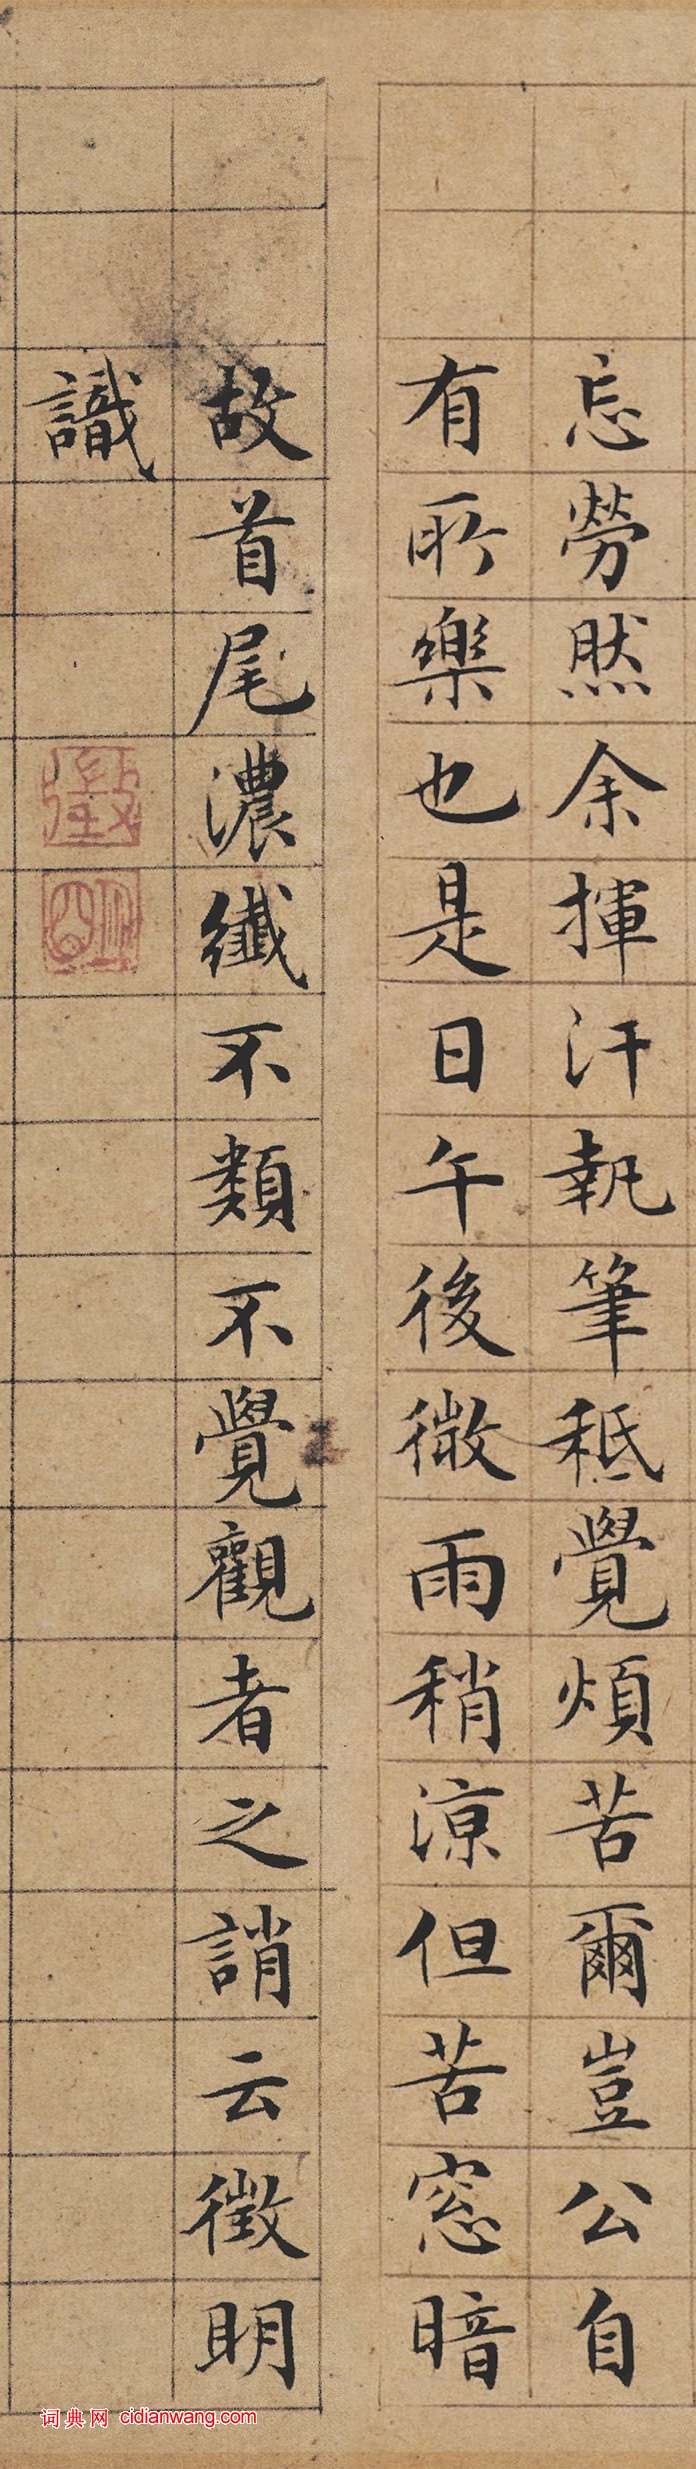 忘勞然余揮汗執筆秪覺煩苦爾豈公自
有所樂也是日午後微雨稍涼但苦窓暗
故首尾濃纖不類不覺觀者之誚云徵明
識
徵
明
词典网 cidianwang.com